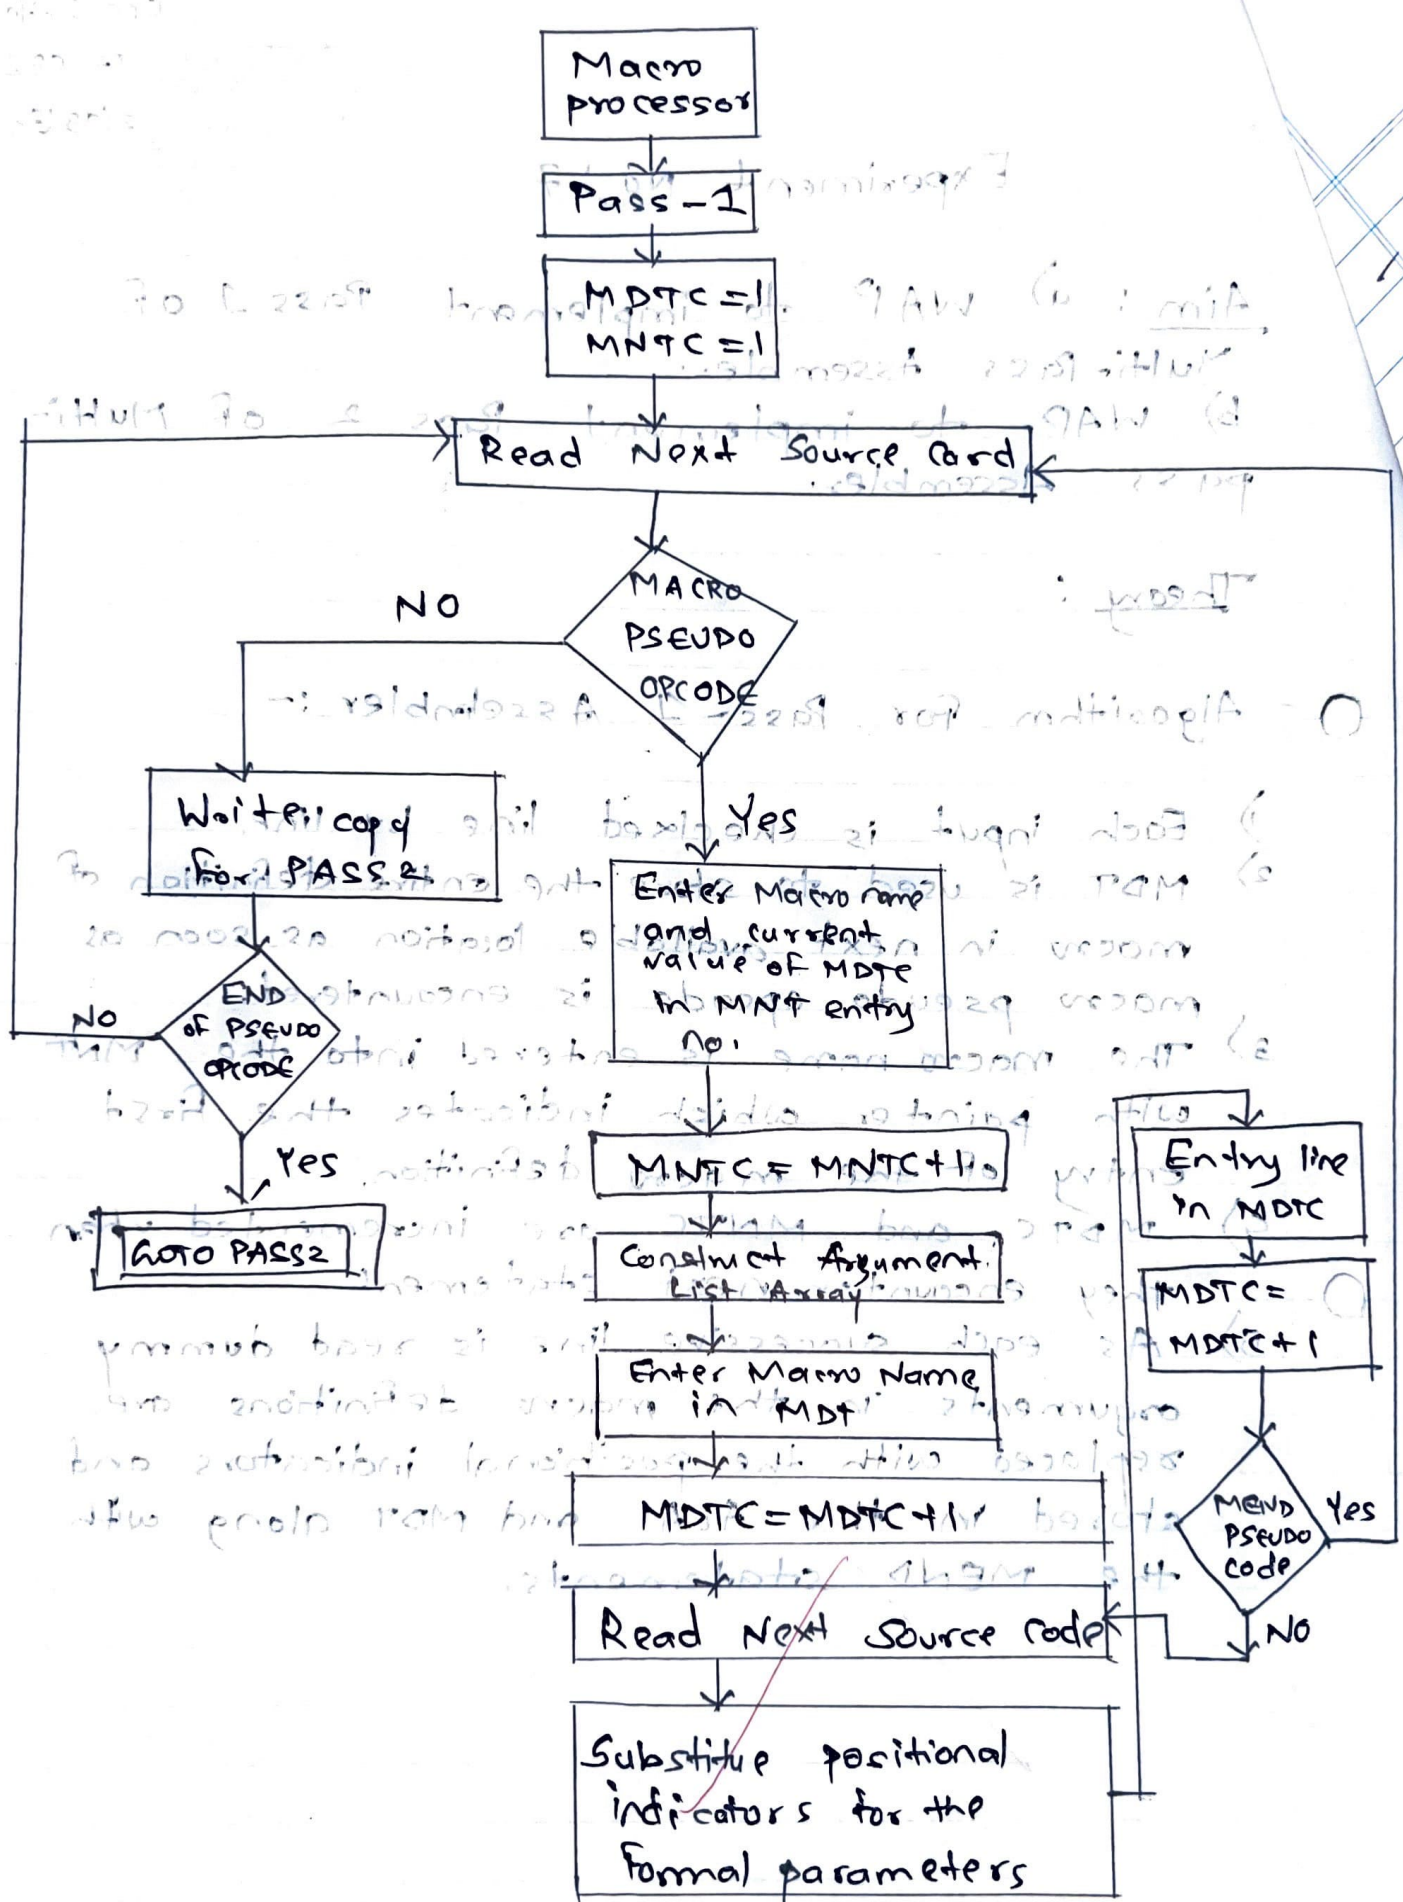 Macro
processor
Pass-1
MDTC=1
MNTC=1
Read Next Source Card
MACRO
PSEUDO
OPCODE
NO
Yes
Write copy
for PASS2
END
OF PSEUDO
OPCODE
NO
Yes
GOTO PASS2
Enter Macro name
and current
value of MDTC
in MNT entry
no.
MNTC = MNTC+1
Construct Argument
List Array
Enter Macro Name
in MDT
MDTC=MDTC+1
Read Next Source Code
Substitue positional
indicators for the
Formal parameters
Entry line
in MDTC
MDTC=
MDTC+1
MEND
PSEUDO
Code
Yes
NO